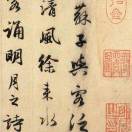 蘇子與客泛
清風徐來水
客誦明月之詩